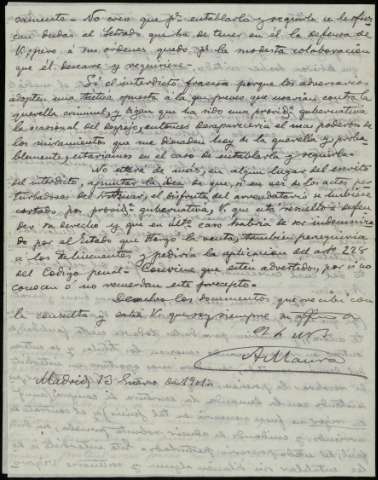 crimento.- No creo que pa. entablarla y seguirla se le ofrez-
can dudas al Letrado que ha de tener en él la defensa de
V. pero á sus órdenes quedo pa. la modesta colaboración
que él deseare y requiriere.
Si el interdicto fracasa porque los adversarios
adopten una táctica opuesta á la que preveo que usarían contra la
querella criminal, y digan que ha sido una provida. gubernativa
la ocasional del despojo, entonces desaparecería el más poderoso de
los miramientos que me disuaden hoy de la querella y, proba-
blemente, estaríamos en el caso de entablarla y seguirla.
No estará de más, en algún lugar del escrito
del interdicto, apuntar la idea de que, si en vez de los actos per-
turbadores del el disfrute del arrendatario se hubiera
cortado por provida. gubernativa, V. que está resuelto á defen-
der su derecho y que en último caso habría de ser indemnizado
por el Estado que otorgó la venta, también perseguiría
á los delincuentes y pediría la aplicación del art. 228
del Código penal. Conviene que estén advertidos, por si no
conocen ó no recuerdan este precepto.
Devuelvo los documentos que recibí con
la consulta y sabe V. que soy siempre su affmo
q. b. s. m.
A Maura
Madrid, 13 Enero de 1901